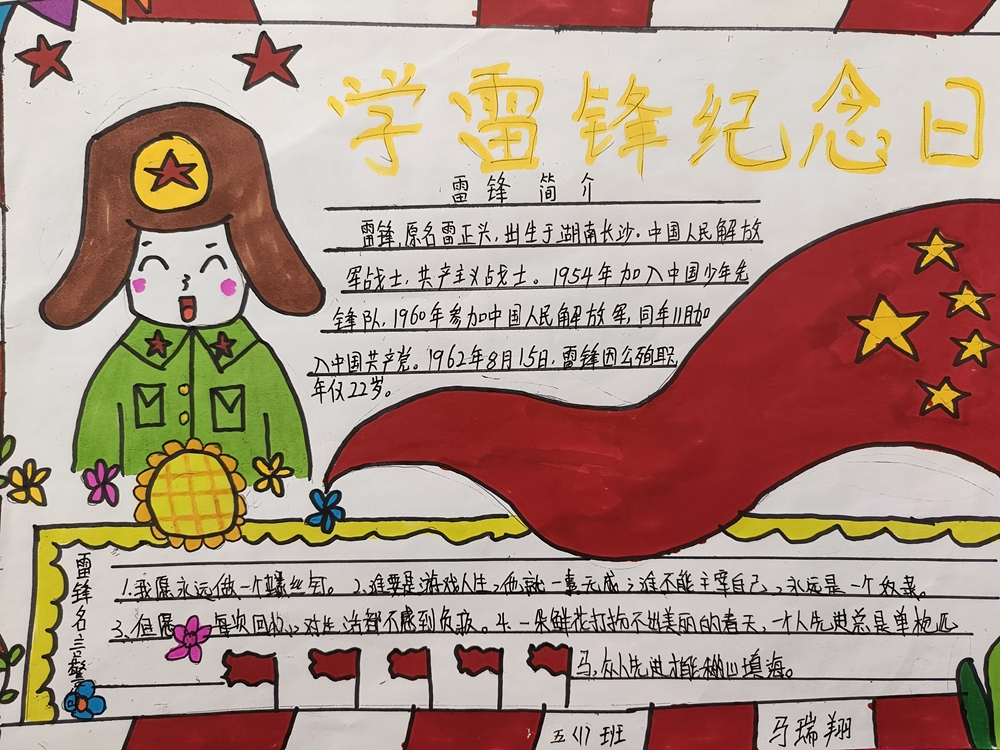 学雷锋纪念日
雷锋简介
雷锋,原名雷正头,出生于湖南长沙.中国人民解放
军战士,共产主义战士。1954年加入中国少年先
锋队,1960年参加中国人民解放军,同年11月加
入中国共产党。1962年8月15日,雷锋因公殉职
年仅22岁。
雷锋名言警
1.我愿永远做一个螺丝钉。2.谁要是游戏人生,他就一事无成;谁不能主宰自己,永远是一个奴隶。
3.但愿每次回忆,对生活都不感到负疚。4.一朵鲜花打扮不出美丽的春天,一个人先进总是单枪匹
马,众人先进才能移山填海。
五〈1〉班
马瑞翔